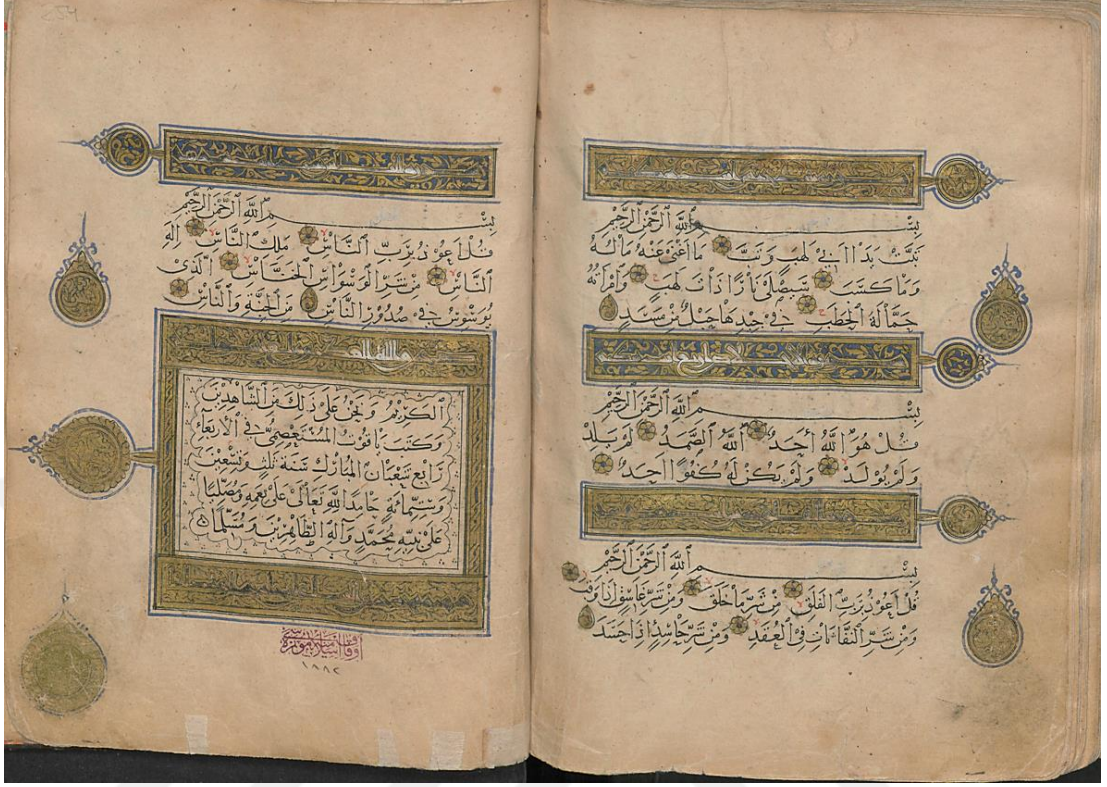 بسم الله الرحمن الرحيم
تبت يدا ابي لهب وتب ما اغنى عنه ماله
وما كسب سيصلى نارا ذات لهب وامراته
حمالة الحطب في جيدها حبل من مسد
بسم الله الرحمن الرحيم
قل هو الله احد الله الصمد لم يلد
ولم يولد ولم يكن له كفوا احد
بسم الله الرحمن الرحيم
قل اعوذ برب الفلق من شر ما خلق ومن شر غاسق اذا وقب
ومن شر النفاثات في العقد ومن شر حاسد اذا حسد
بسم الله الرحمن الرحيم
قل اعوذ برب الناس ملك الناس اله
الناس من شر الوسواس الخناس الذي
يوسوس في صدور الناس من الجنة والناس
الكريم ونحن على ذلك من الشاهدين
وكتب ياقوت المستعصمي في الاربعاء
رابع شعبان المبارك سنة ثلث وتسعين
وستمائة حامدا لله تعالى على نعمه ومصليا
على نبيه محمد وآله الطاهرين ومسلما
اوقاف اسلاميه موزه سى